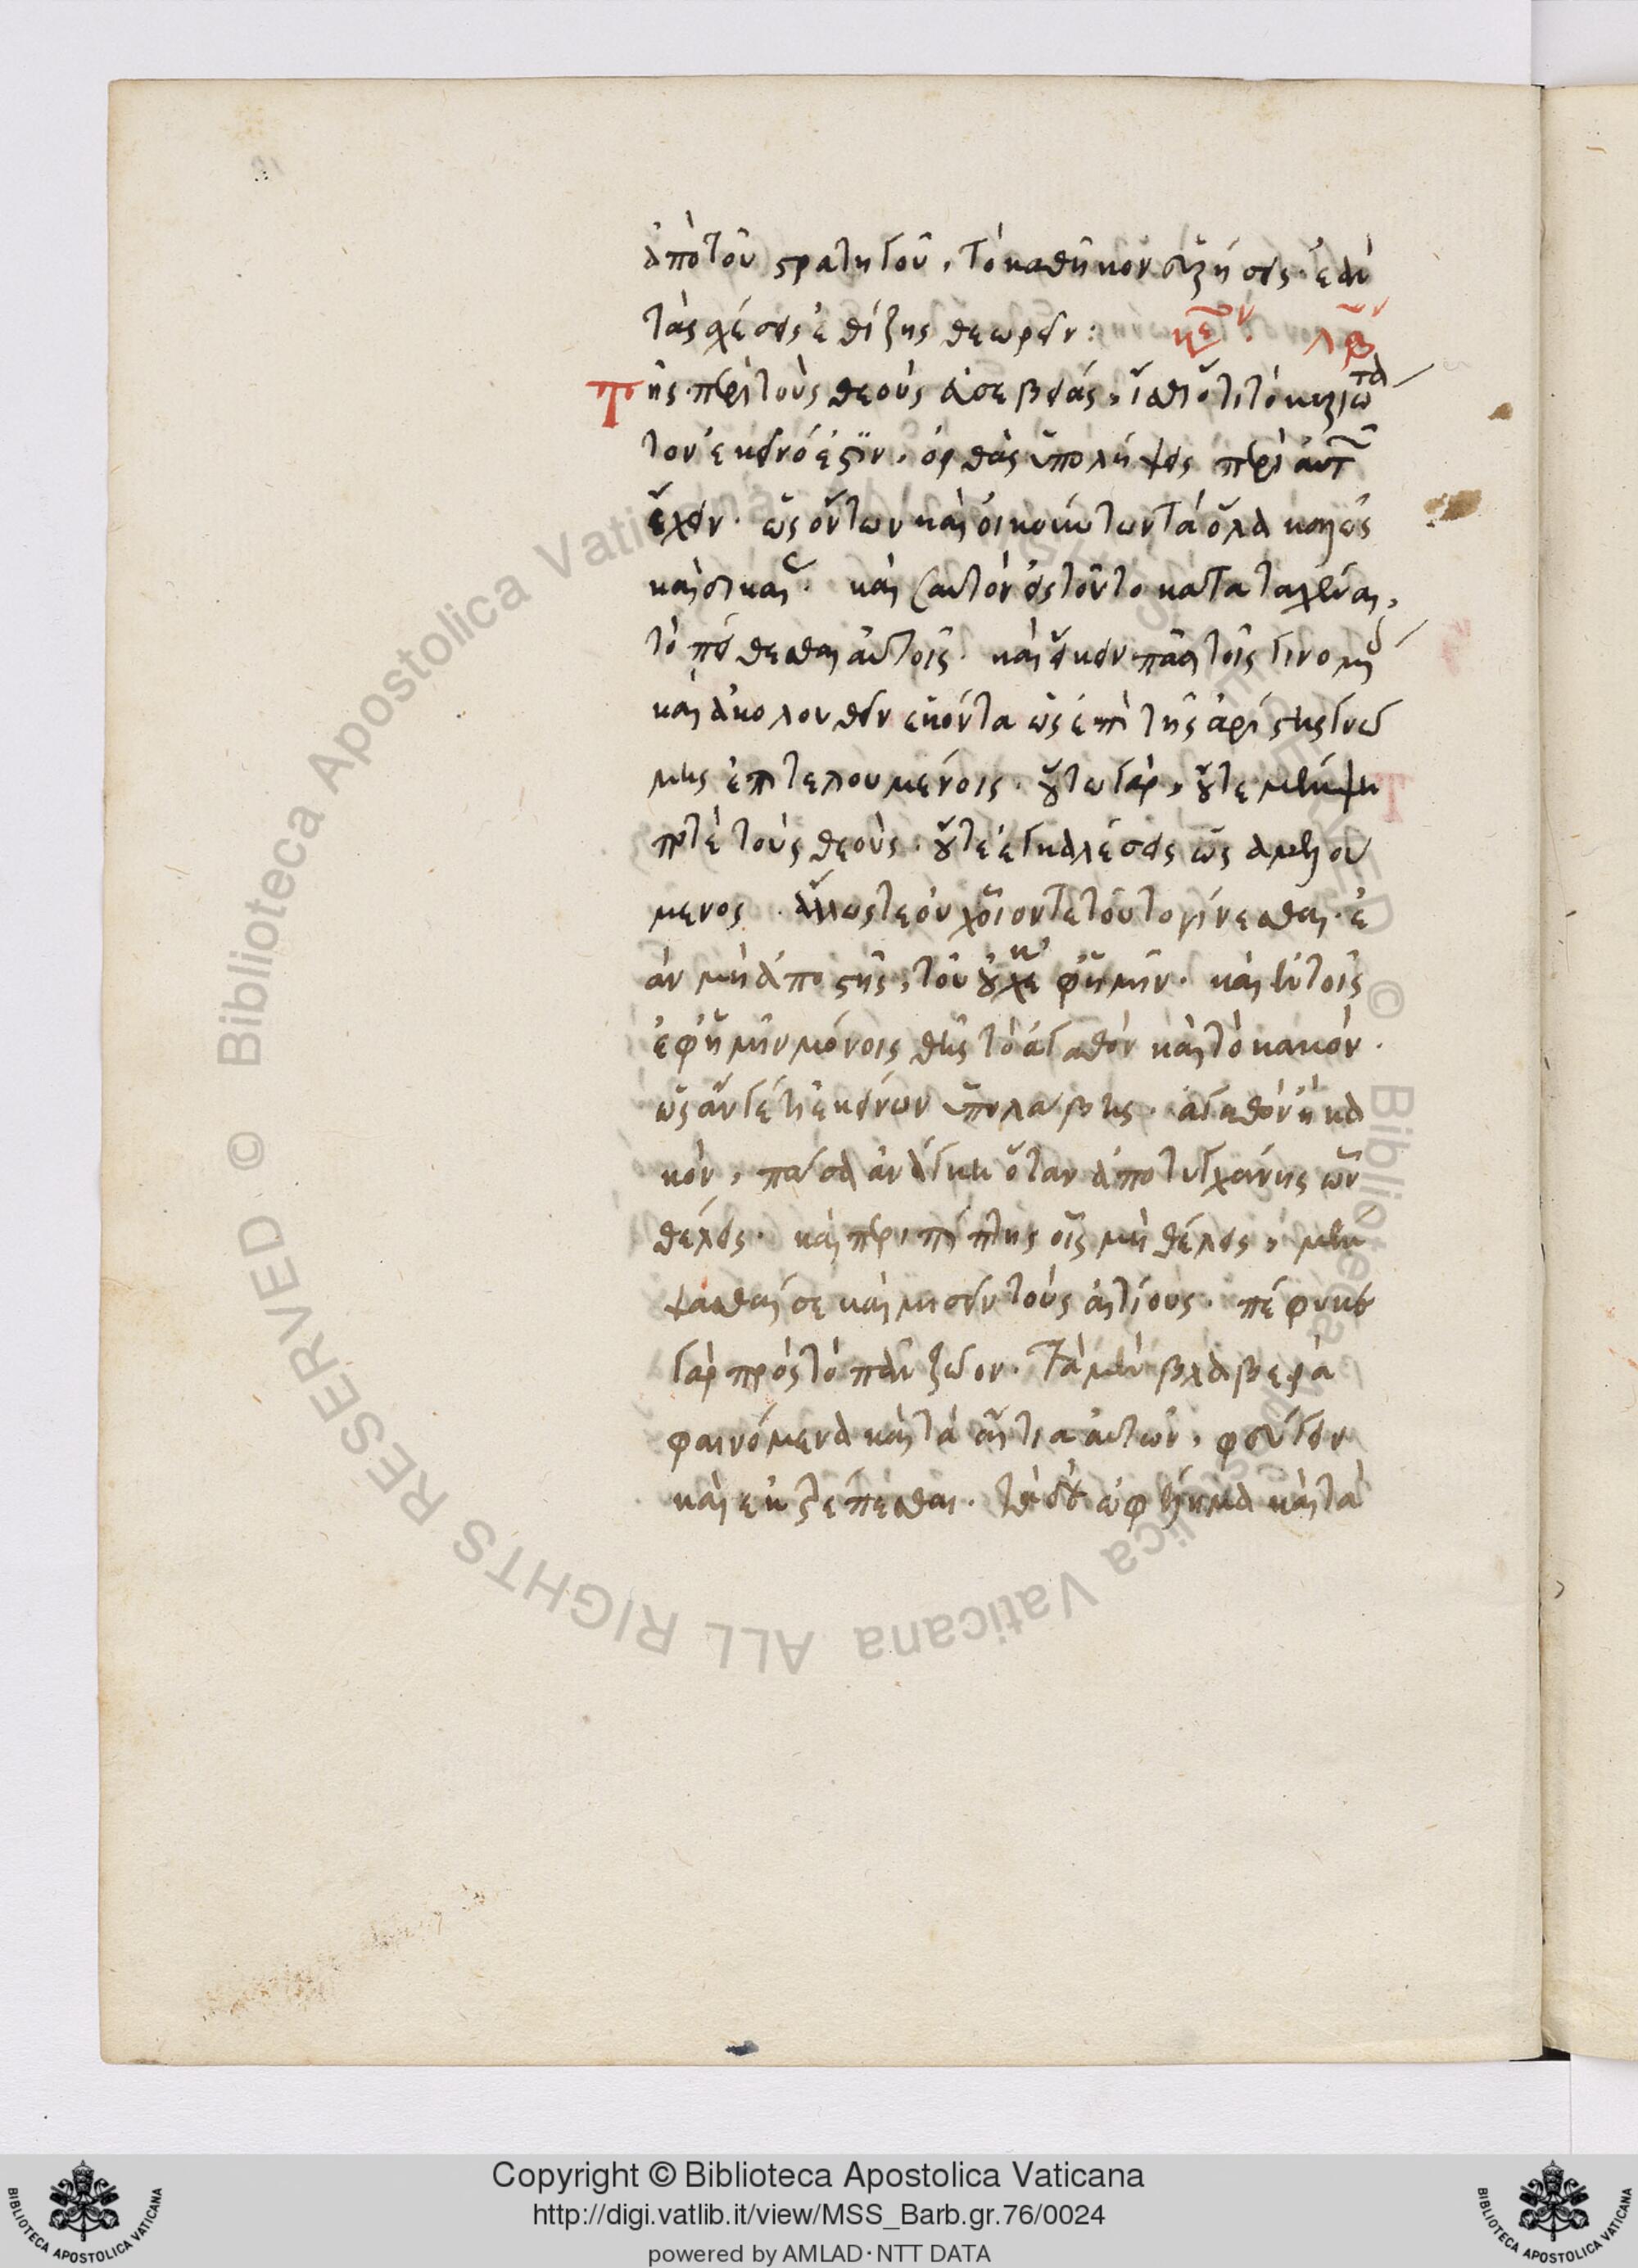 ἀπὸ τοῦ στρατηγοῦ, τὸ καθῆκον εὑρήσεις· ἐὰν
τὰς σχέσεις ἐθίζῃς θεωρεῖν:
κεφ λβ
Τῆς περὶ τοὺς θεοὺς εὐσεβείας, ἴσθι ὅτι τὸ κυριώτα
τον ἐκεῖνό ἐστιν, ὀρθὰς ὑπολήψεις περὶ αὐτ
ἔχειν· ὡς ὄντων καὶ διοικούντων τὰ ὅλα καλῶς
καὶ δικαί· καὶ σαυτὸν εἰς τοῦτο κατατεταχέναι,
τὸ πείθεσθαι αὐτοῖς· καὶ εἴκειν πᾶσι τοῖς γινομέ
καὶ ἀκολουθεῖν ἑκόντα ὡς ἐπὶ τῆς ἀρίστης γνώ
μης ἐπιτελουμένοις· οὕτω γὰρ, οὔτε μέμψῃ
ποτὲ τοὺς θεοὺς· οὔτε ἐγκαλέσεις ὡς ἀμελού
μενος· ἄλλως τε οὐχ οἷόν τε τοῦτο γίνεσθαι· ἐ
ὰν μὴ ἀποστῇς, τοῦ οὐκ ἐφ' ἡμῖν· καὶ ἐν τοῖς
ἐφ' ἡμῖν μόνοις θῇς τὸ ἀγαθὸν καὶ τὸ κακόν·
ὡς ἄν γέ τι ἐκείνων ὑπολάβῃς· ἀγαθὸν ἢ κα
κόν, πᾶσα ἀνάγκη ὅταν ἀποτυγχάνῃς ὧν
θέλεις· καὶ περιπίπτῃς οἷς μὴ θέλεις, μέμ
ψασθαί σε καὶ μισεῖν τοὺς αἰτίους· πέφυκε
γὰρ πρὸς τὸ πᾶν ζῶον· τὰ μὲν βλαβερὰ
φαινόμενα καὶ τὰ αἴτια αὐτῶν, φεύγειν
καὶ ἐκτρέπεσθαι· τὰ δὲ ὠφέλιμα καὶ τὰ
Copyright © Biblioteca Apostolica Vaticana
http://digi.vatlib.it/view/MSS_Barb.gr.76/0024
powered by AMLAD·NTT DATA
© Biblioteca Apostolica Vaticana ALL RIGHTS RESERVED
BIBLIOTECA APOSTOLICA VATICANA
BIBLIOTECA APOSTOLICA VATICANA